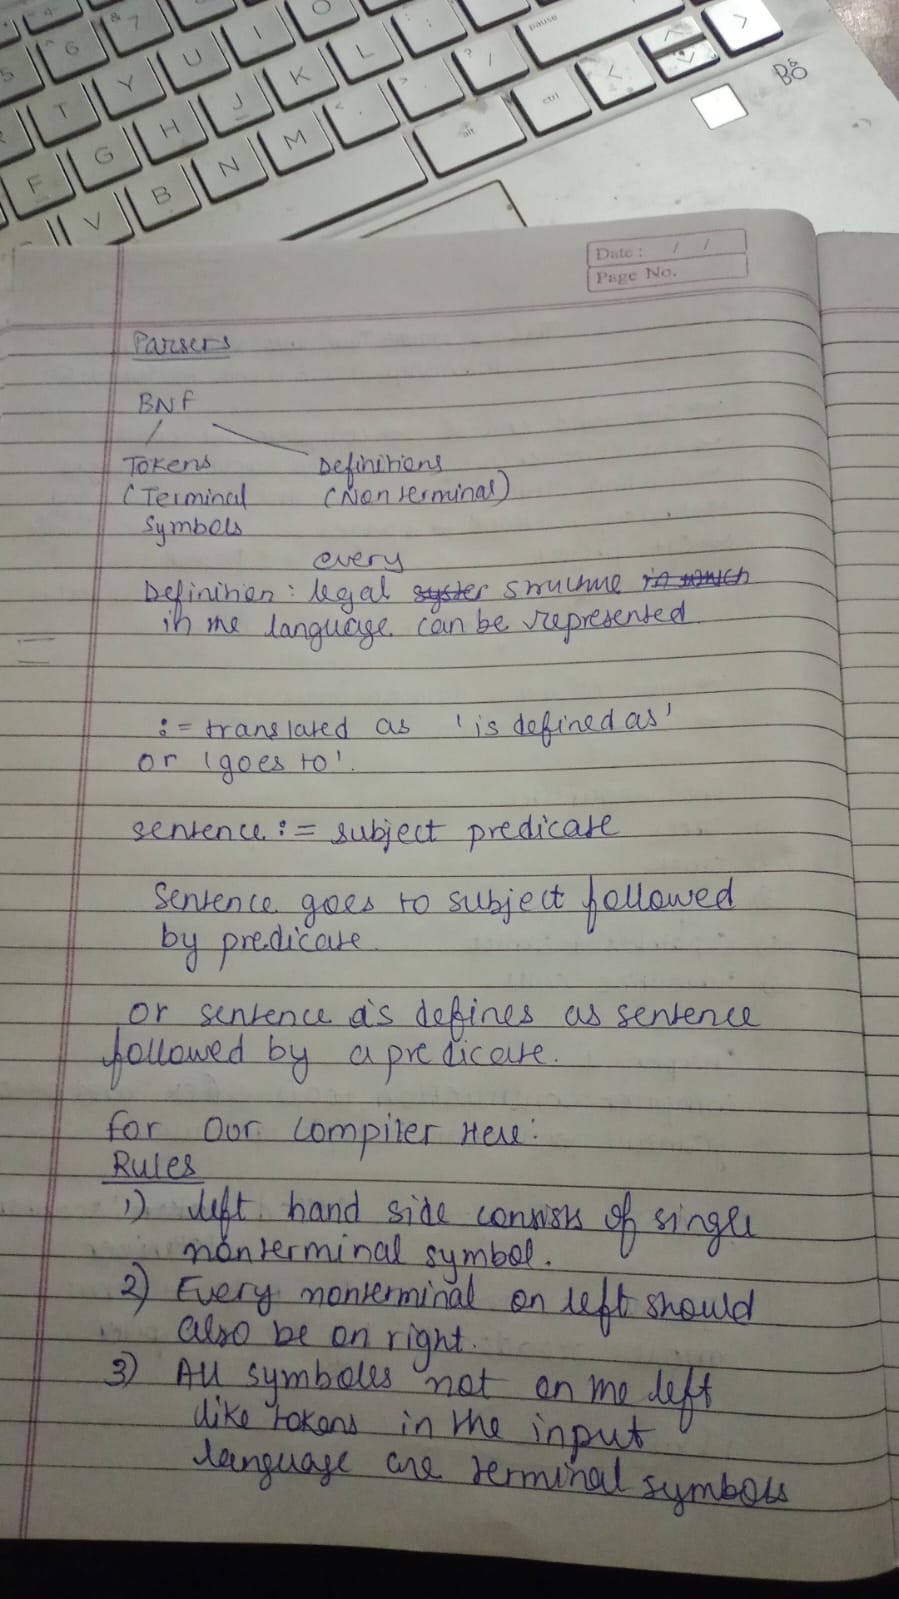 6 7 U I O pause
5 T Y J K L : ? / < >
F G H N M < > alt ctrl
V B
Bō
Date : / /
Page No.
Parsers
BNF
Tokens Definitions
(Terminal (Nonterminal)
Symbols
every
Definition : legal syster structure in which
in the language can be represented
:= translated as 'is defined as'
or 'goes to'.
sentence := subject predicate
Sentence goes to subject followed
by predicate.
or sentence is defines as sentence
followed by a predicate.
for our compiler Here:
Rules
1) left hand side consists of single
nonterminal symbol.
2) Every nonterminal on left should
also be on right.
3) All symboles not on the left
like tokens in the input
language are terminal symbols